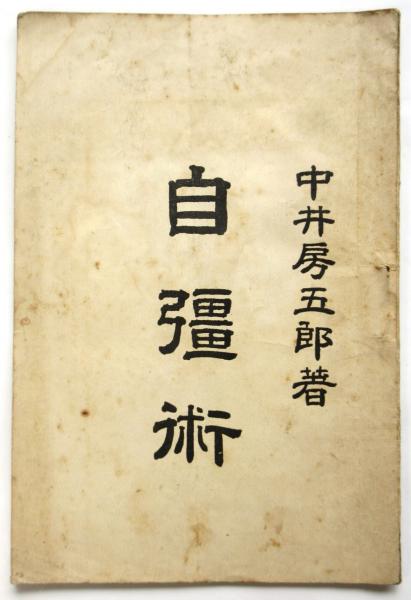 中井房五郎著
自彊術